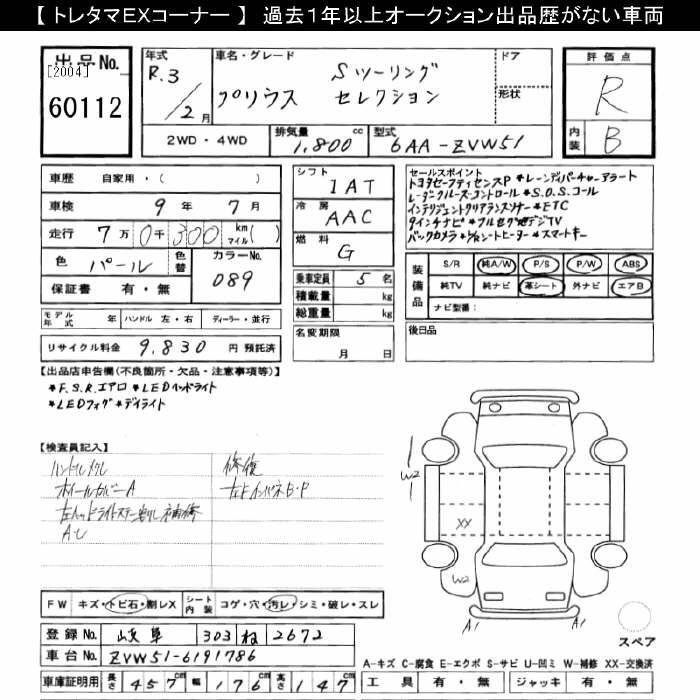 【 トレタマEXコーナー 】 過去１年以上オークション出品歴がない車両
出品No.
[2004]
60112
年式
R.3
2月
車名・グレード
プリウス
Sツーリング
セレクション
ドア
形状
評価点
R
内装
B
2WD ・ 4WD
排気量 1,800 cc
型式 6AA-ZVW51
車歴 自家用・( )
車検 9年 7月
走行 7万 0千 300 km マイル( )
色 パール
色替
カラーNo. 089
保証書 有・無
モデル年式 年 ハンドル 左・右 ディーラー・並行
リサイクル料金 9,830 円 預託済
シフト 1AT
冷房 AAC
燃料 G
乗車定員 5 名
積載量 kg
総重量 kg
名変期限
月 日
セールスポイント
トヨタセーフティセンスP *レーンディパーチャーアラート
レーダークルーズコントロール *S.O.S.コール
インテリジェントクリアランスソナー *ETC
9インチナビ *フルセグ地デジTV
バックカメラ *シートヒーター *スマートキー
装備品
S/R 純A/W P/S P/W ABS
純TV 純ナビ 革シート 外ナビ エアB
ナビ型番：
後日品
【出品店申告欄(不良箇所・欠品・注意事項等)】
*F.S.R.エアロ *LEDヘッドライト
*LEDフォグ *デイライト
【検査員記入】
ハンドルスレ
ホイールカバーA
左ヘッドライトステー割レ補修
AU
修復
左Fインパネ B・P
W2
XX
W2
A1
A1
スペア
FW キズ・トビ石・割レX
シート内装 コゲ・穴・汚レ・シミ・破レ・スレ
登録 No. 岐阜 303 ね 2672
車台 No. ZVW51-6191786
車庫証明用 長さ 457cm 幅 176cm 高さ 147cm
A-キズ C-腐食 E-エクボ S-サビ U-凹ミ W-補修 XX-交換済
工具 有・無 ジャッキ 有・無